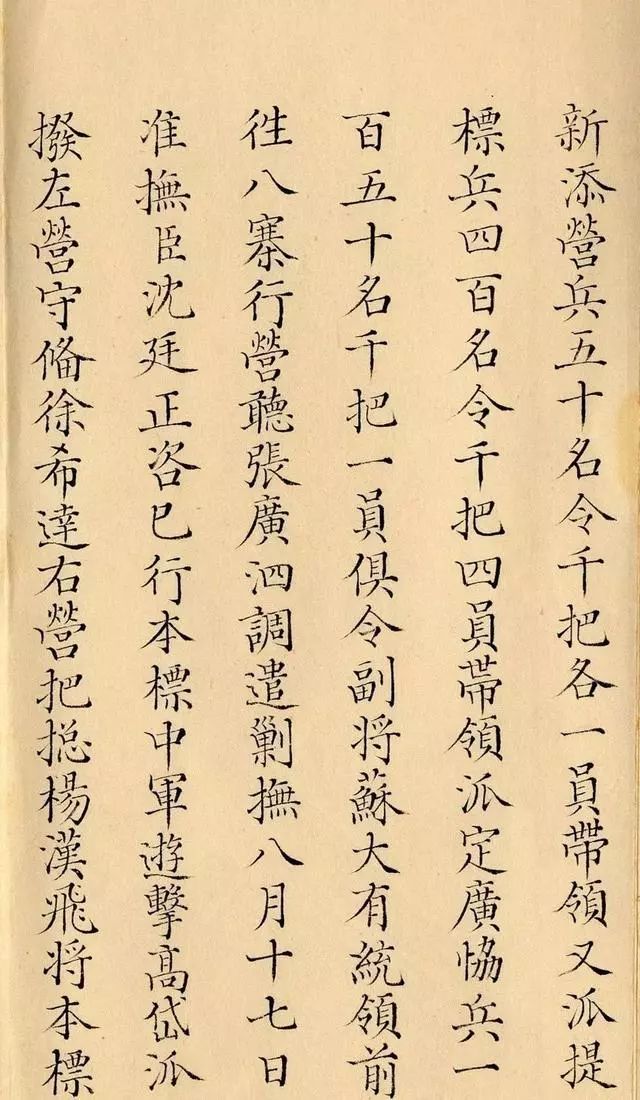 新添營兵五十名令千把各一員帶領又派提
標兵四百名令千把四員帶領派定廣恊兵一
百五十名千把一員俱令副將蘇大有統領前
徃八寨行營聽張廣泗調遣剿撫八月十七日
准撫臣沈廷正咨已行本標中軍遊擊高岱派
撥左營守俻徐希達右營把搃楊漢飛將本標